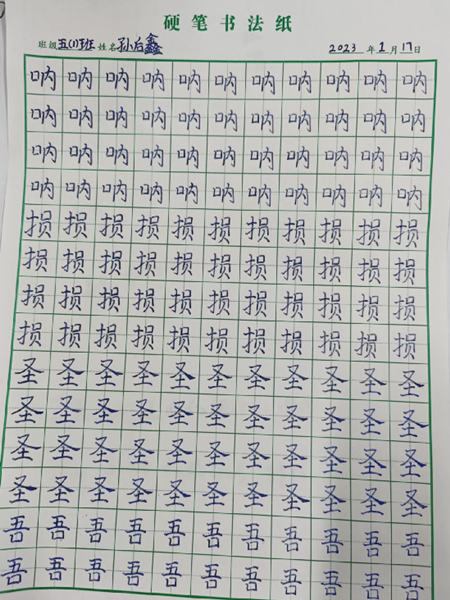 硬笔书法纸
班级五(1)班 姓名孙后鑫 2023年1月17日
呐呐呐呐呐呐呐呐呐呐呐
呐呐呐呐呐呐呐呐呐呐呐
呐呐呐呐呐呐呐呐呐呐呐
呐呐呐呐呐呐呐呐呐呐呐
损损损损损损损损损损损
损损损损损损损损损损损
损损损损损损损损损损损
损损损损损损损损损损损
圣圣圣圣圣圣圣圣圣圣圣
圣圣圣圣圣圣圣圣圣圣圣
圣圣圣圣圣圣圣圣圣圣圣
圣圣圣圣圣圣圣圣圣圣圣
吾吾吾吾吾吾吾吾吾吾吾
吾吾吾吾吾吾吾吾吾吾吾